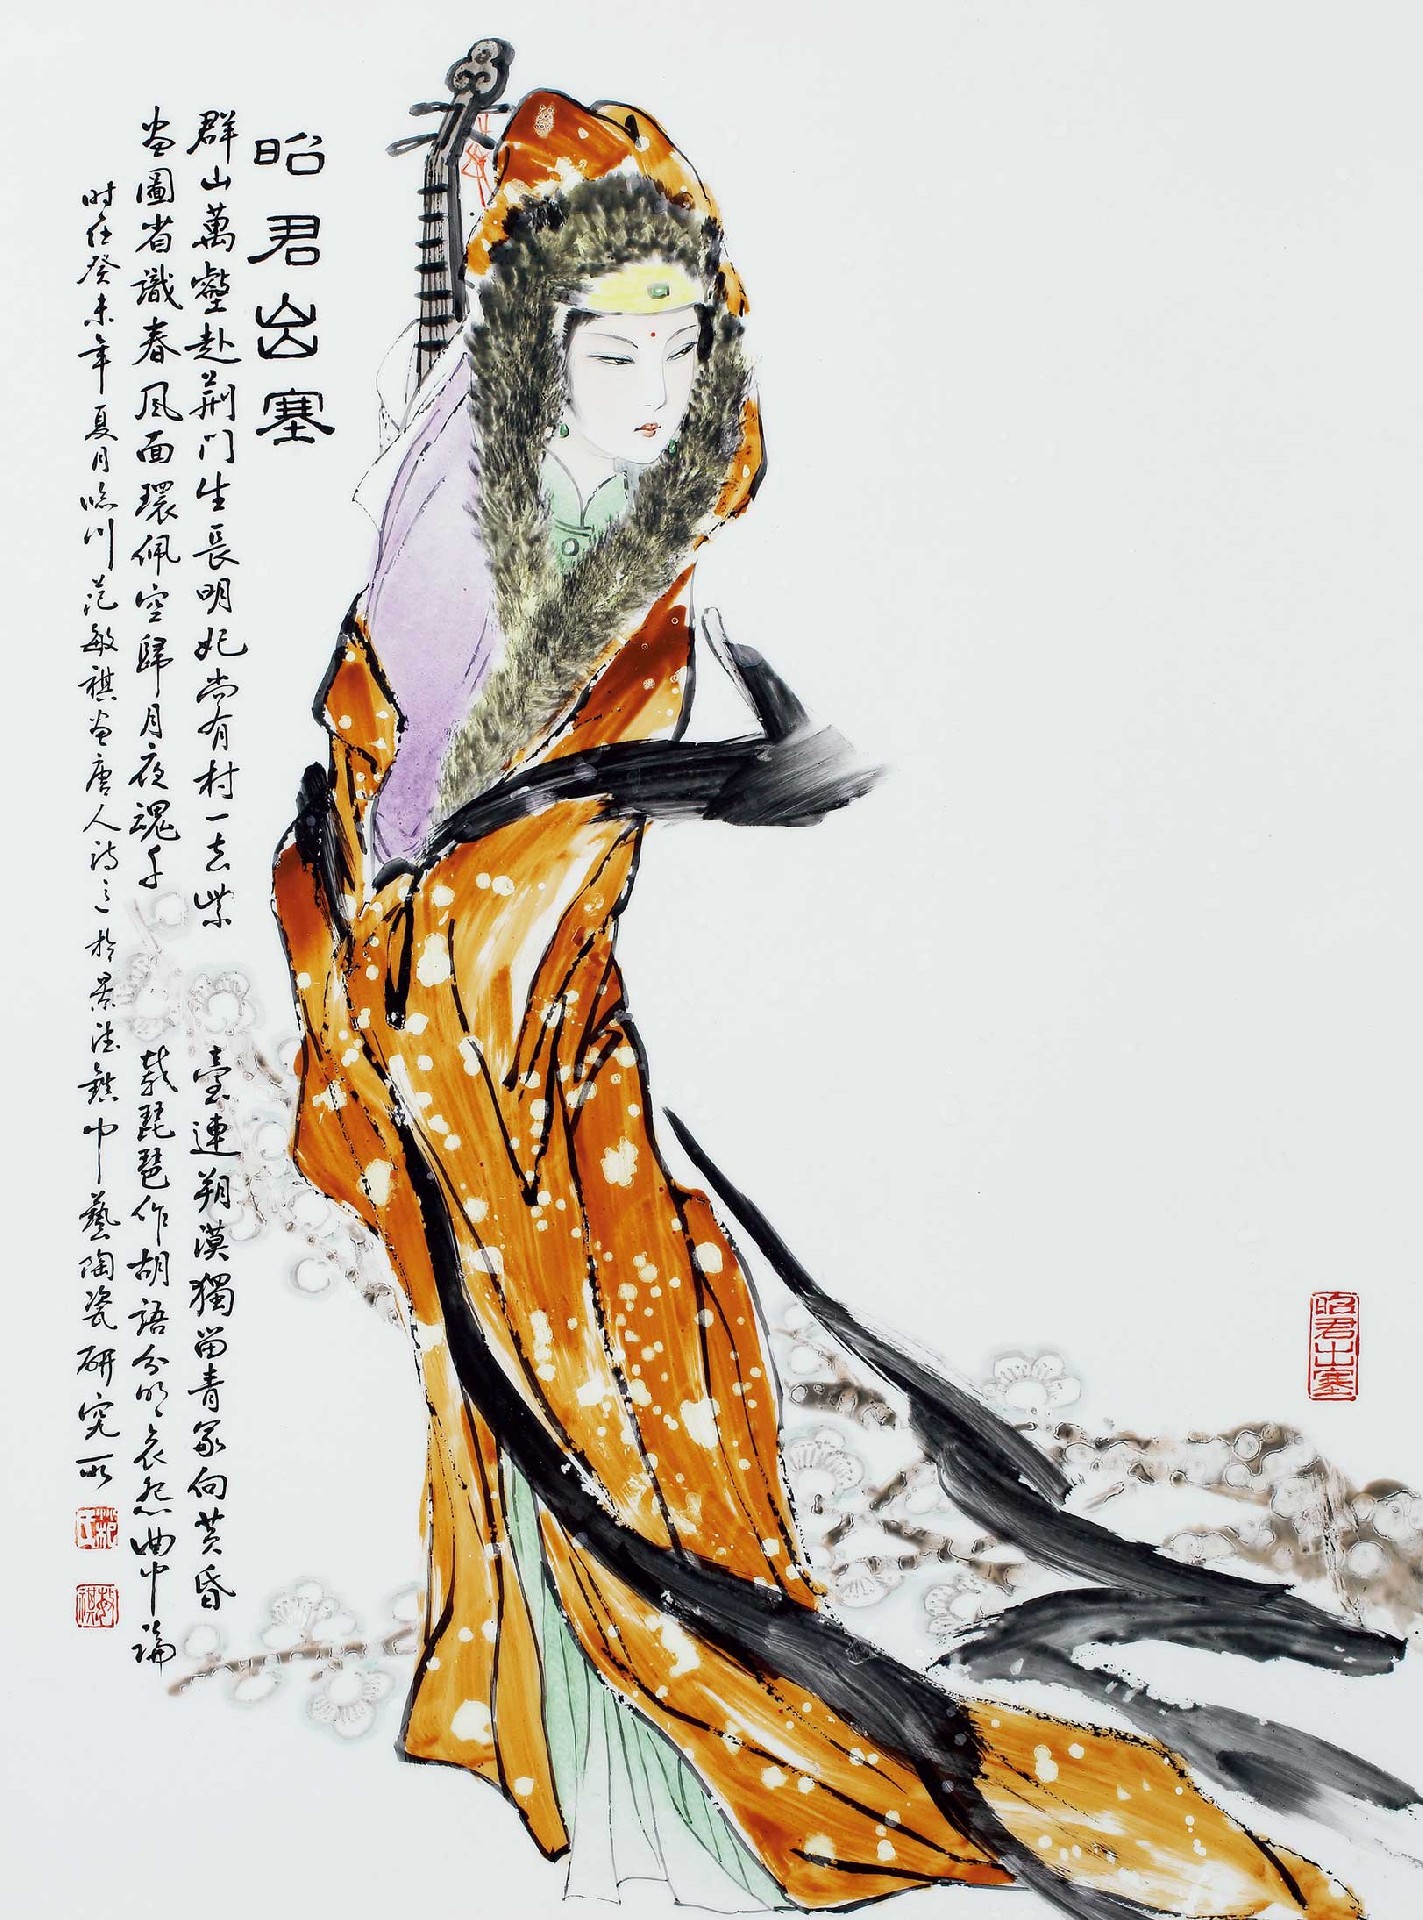 昭君出塞
群山萬壑赴荆门生長明妃尚有村一去紫
臺連朔漠獨留青冢向黄昏
畫圖省識春風面環佩空歸月夜魂千
載琵琶作胡語分明哀怨曲中論
时在癸未年夏月临川范敏祺畫唐人诗意於景德鎮中藝陶瓷研究所
昭君出塞
敏祺